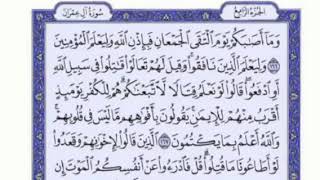 الجزء الرابع
سورة آل عمران
وَمَا أَصَٰبَكُمْ يَوْمَ ٱلْتَقَى ٱلْجَمْعَانِ فَبِإِذْنِ ٱللَّهِ وَلِيَعْلَمَ ٱلْمُؤْمِنِينَ
١٦٦ وَلِيَعْلَمَ ٱلَّذِينَ نَافَقُوا۟ وَقِيلَ لَهُمْ تَعَالَوْا۟ قَٰتِلُوا۟ فِى سَبِيلِ ٱللَّهِ
أَوِ ٱدْفَعُوا۟ قَالُوا۟ لَوْ نَعْلَمُ قِتَالًا لَّٱتَّبَعْنَٰكُمْ هُمْ لِلْكُفْرِ يَوْمَئِذٍ
أَقْرَبُ مِنْهُمْ لِلْإِيمَٰنِ يَقُولُونَ بِأَفْوَٰهِهِم مَّا لَيْسَ فِى قُلُوبِهِمْ
وَٱللَّهُ أَعْلَمُ بِمَا يَكْتُمُونَ ١٦٧ ٱلَّذِينَ قَالُوا۟ لِإِخْوَٰنِهِمْ وَقَعَدُوا۟
لَوْ أَطَاعُونَا مَا قُتِلُوا۟ قُلْ فَٱدْرَءُوا۟ عَنْ أَنفُسِكُمُ ٱلْمَوْتَ إِن